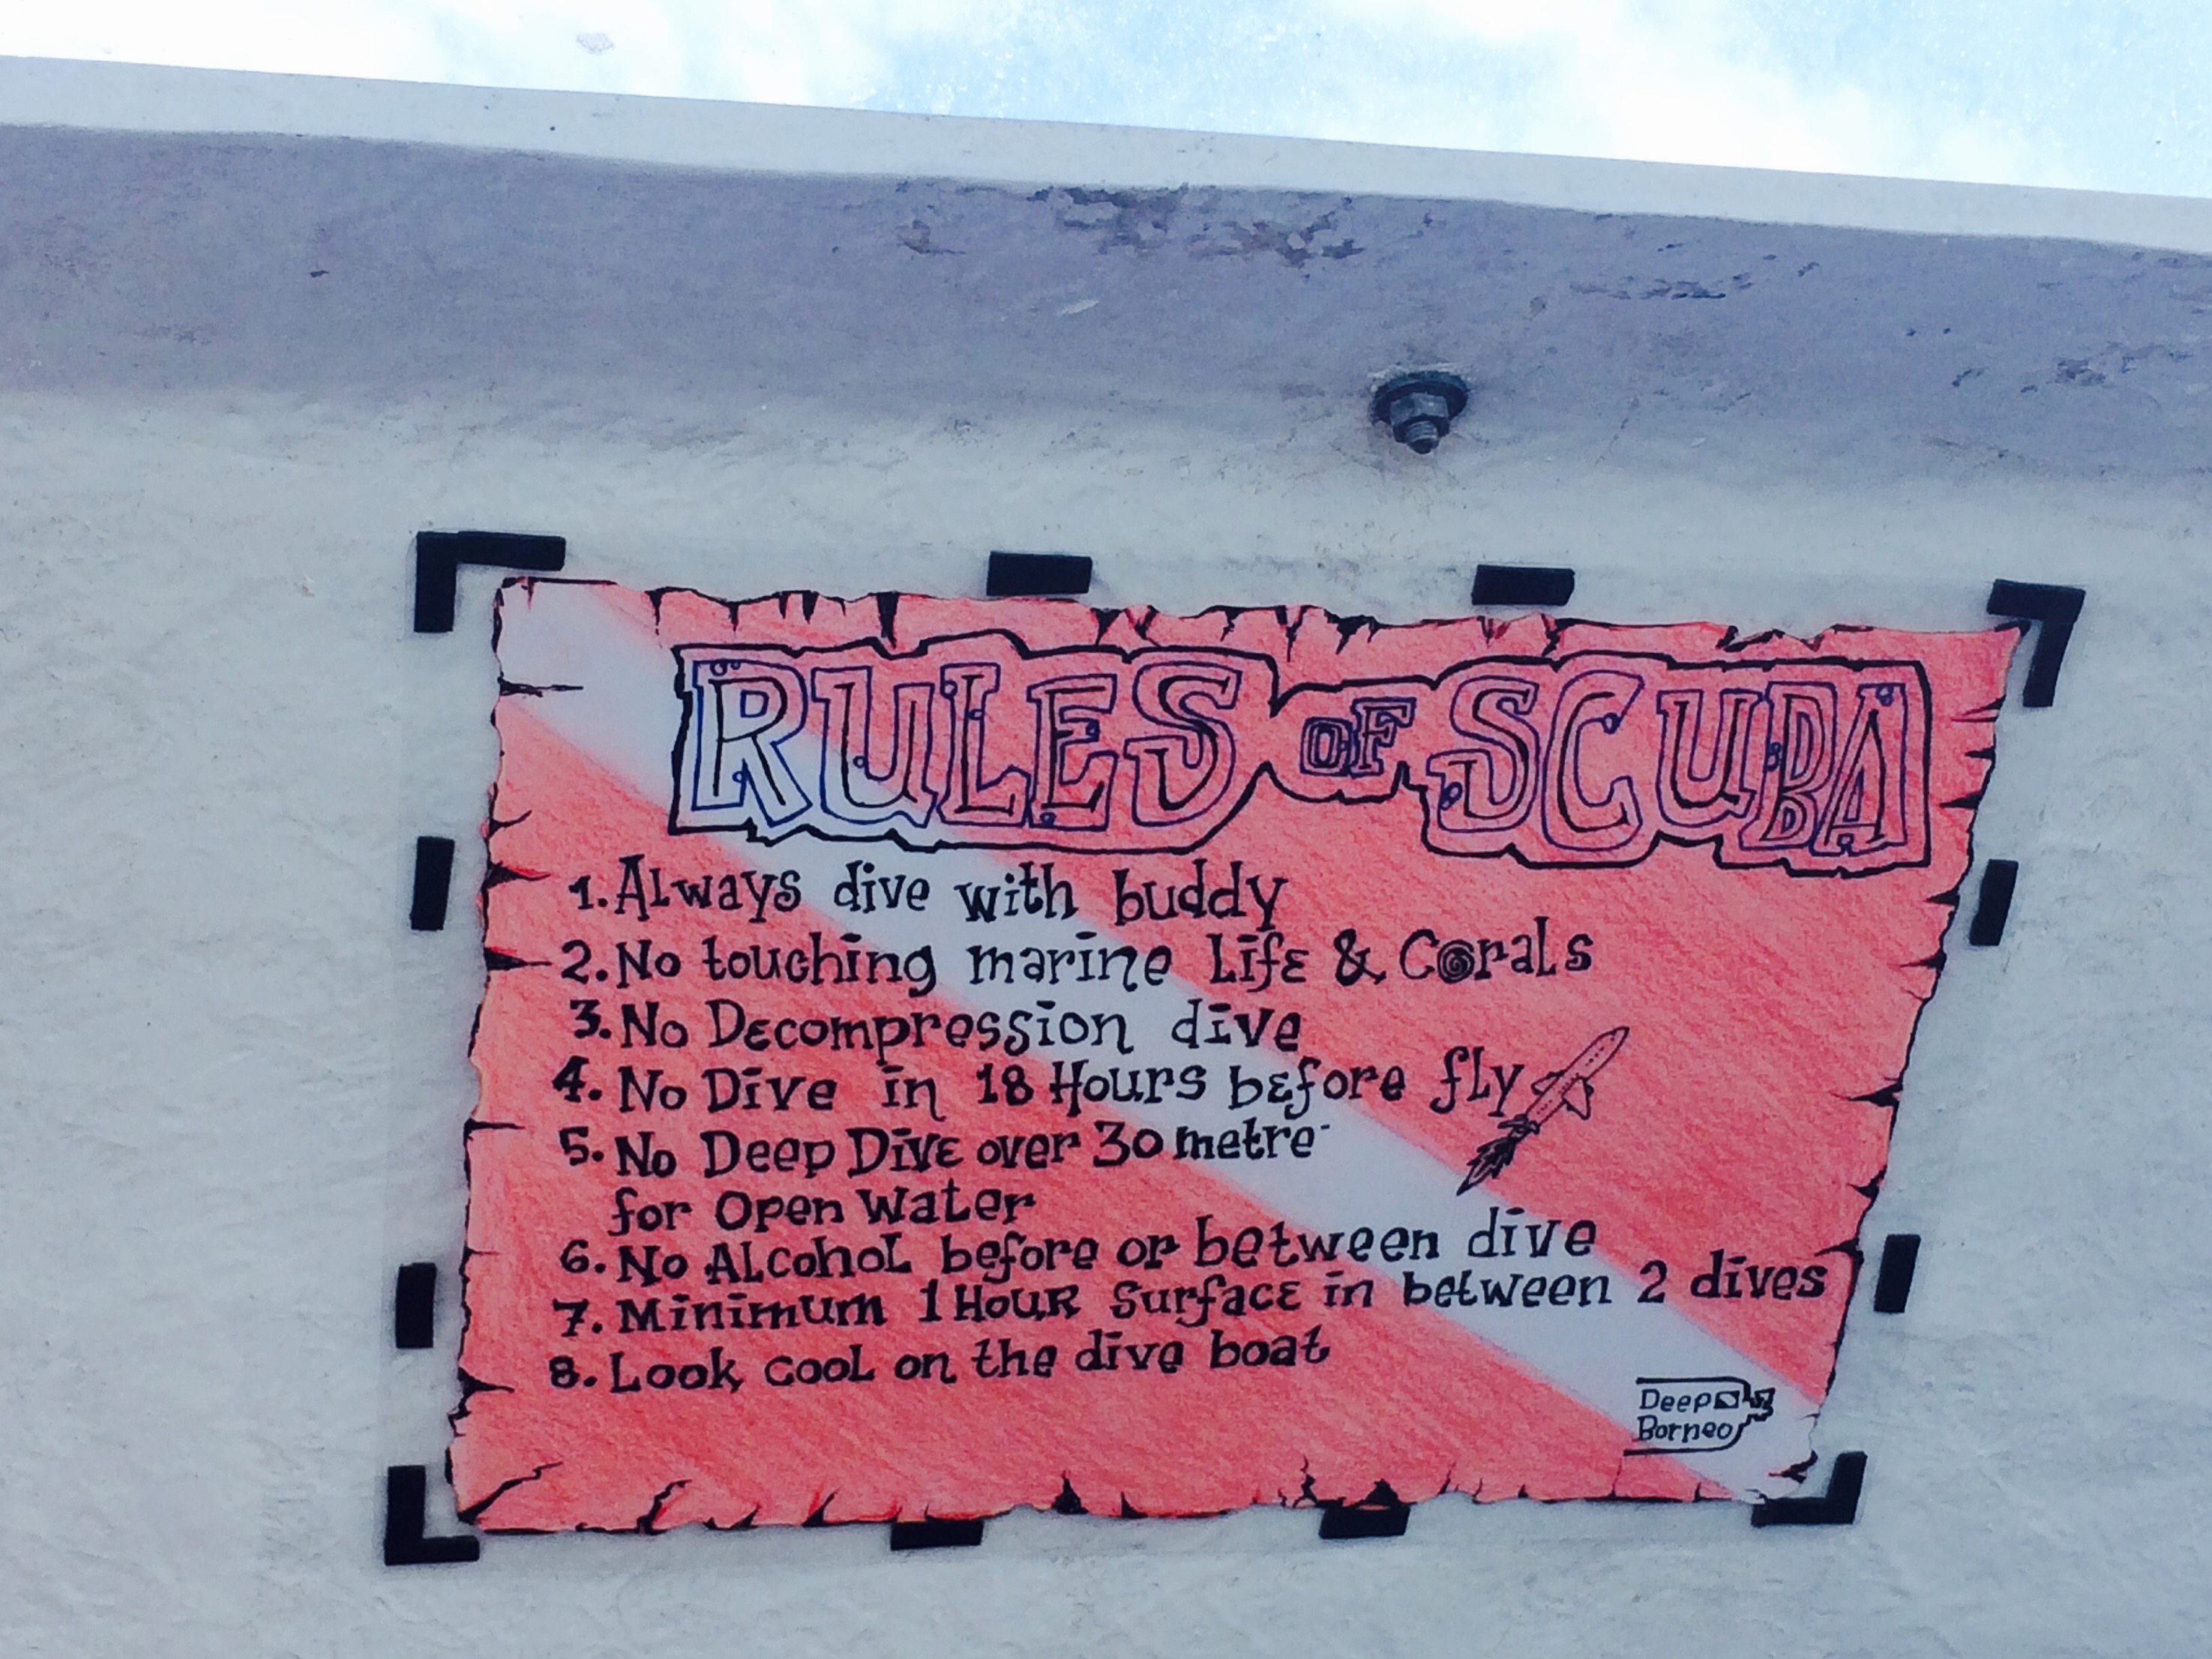 RULES OF SCUBA
1. Always dive with buddy
2. No touching marine Life & Corals
3. No Decompression dive
4. No Dive in 18 Hours before fly
5. No Deep Dive over 30 metre
for Open Water
6. No Alcohol before or between dive
7. Minimum 1 Hour Surface in between 2 dives
8. Look cool on the dive boat
Deep
Borneo